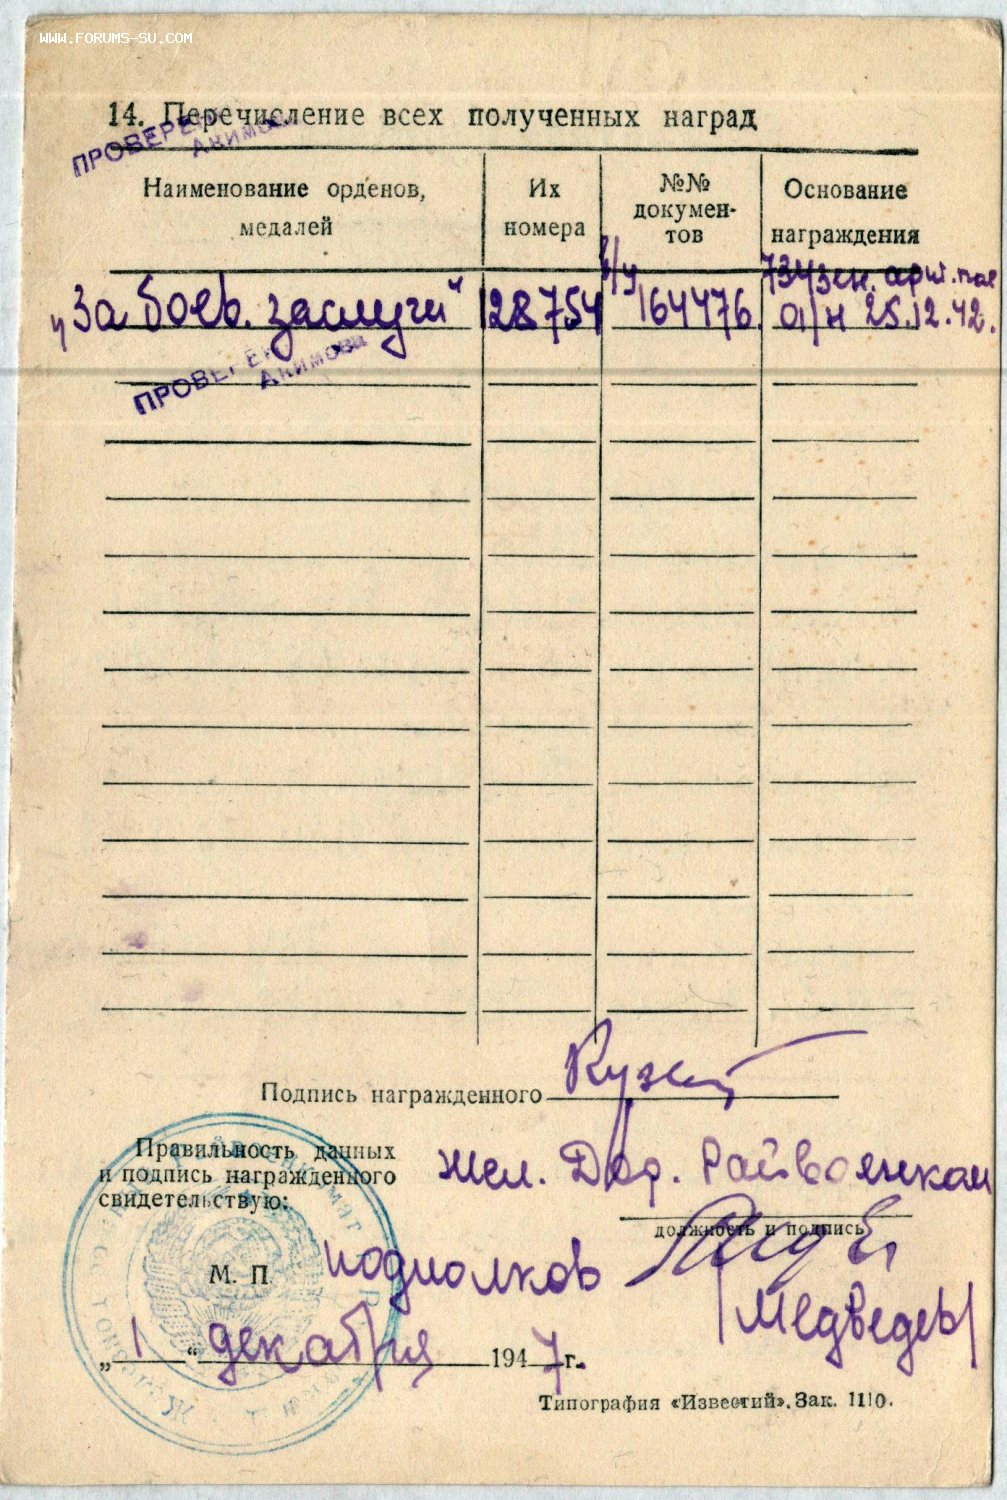 WWW.FORUMS-SU.COM
14. Перечисление всех полученных наград
ПРОВЕРЕН
Акимова
Наименование орденов, медалей
Их номера
№№ докумен-
тов
Основание награждения
„За боев. заслуги“ 128754 б/у 164476. 734 зен. арт. пол
от 25.12.42.
ПРОВЕРЕН
Акимова
Подпись награжденного
Правильность данных
и подпись награжденного
свидетельствую:
Жел. Дор. Райвоенком
должность и подпись
М. П.
подполков
/Медведев/
„1“ декабря 1947 г.
Типография «Известий». Зак. 1110.